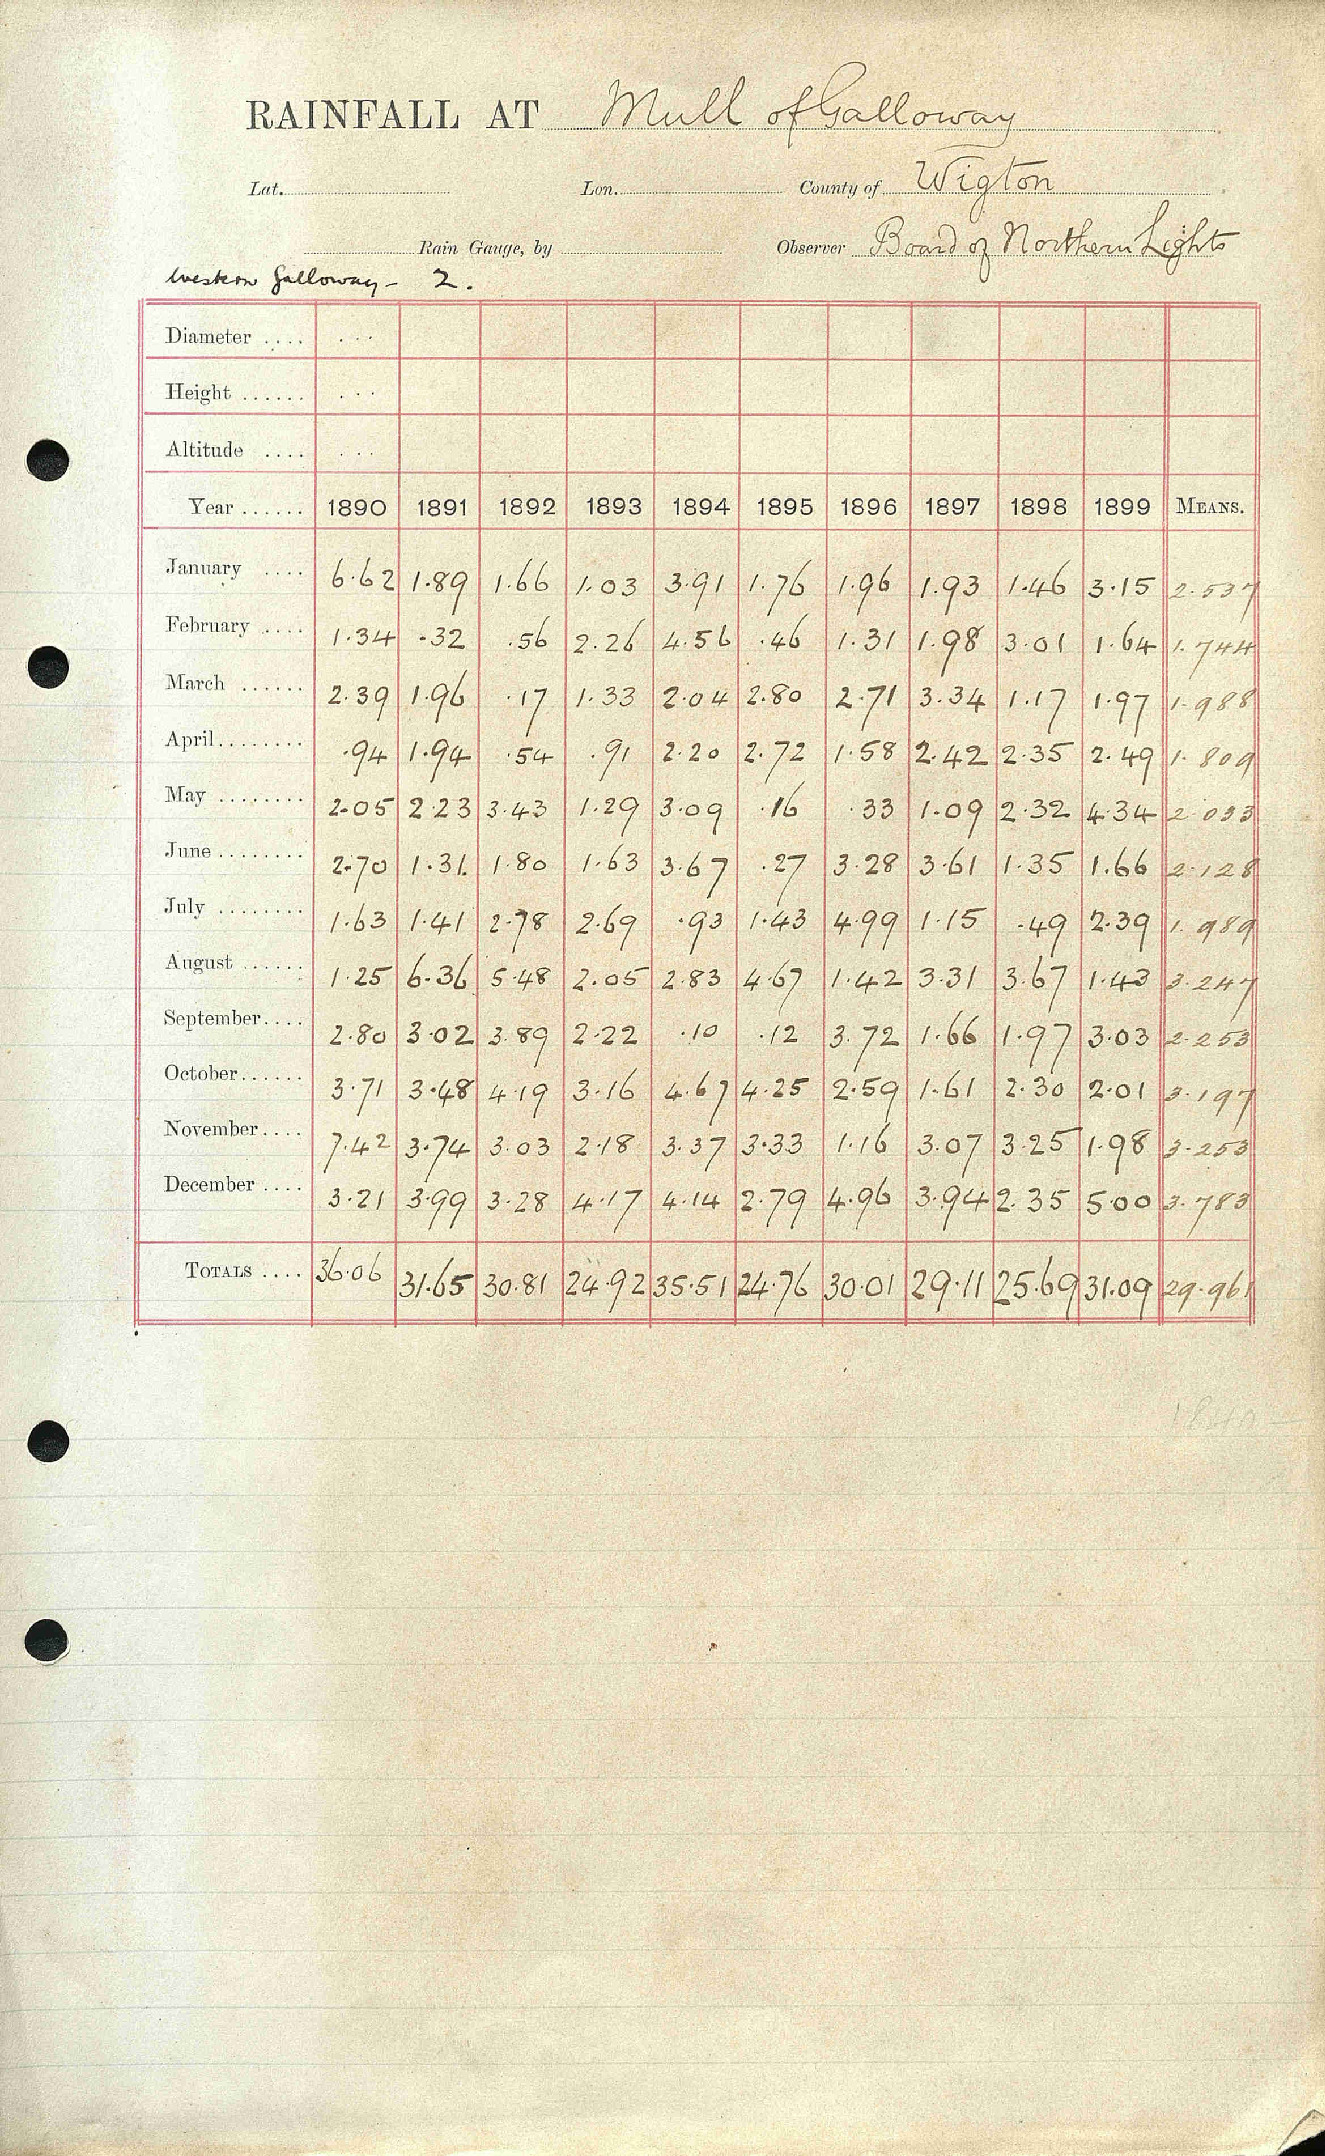 RAINFALL AT Mull of Galloway
Lat. Lon. County of Wigton
Rain Gauge, by Observer Board of Northern Lights
Western Galloway - 2.
Diameter .... ...
Height ...... ...
Altitude .... ...
Year ...... 1890 1891 1892 1893 1894 1895 1896 1897 1898 1899 MEANS.
January .... 6.62 1.89 1.66 1.03 3.91 1.76 1.96 1.93 1.46 3.15 2.537
February .... 1.34 .32 .56 2.26 4.56 .46 1.31 1.98 3.01 1.64 1.744
March ...... 2.39 1.96 .17 1.33 2.04 2.80 2.71 3.34 1.17 1.97 1.988
April ........ .94 1.94 .54 .91 2.20 2.72 1.58 2.42 2.35 2.49 1.809
May ........ 2.05 2.23 3.43 1.29 3.09 .16 .33 1.09 2.32 4.34 2.033
June ........ 2.70 1.31 1.80 1.63 3.67 .27 3.28 3.61 1.35 1.66 2.128
July ........ 1.63 1.41 2.78 2.69 .93 1.43 4.99 1.15 .49 2.39 1.989
August ...... 1.25 6.36 5.48 2.05 2.83 4.67 1.42 3.31 3.67 1.43 3.247
September.... 2.80 3.02 3.89 2.22 .10 .12 3.72 1.66 1.97 3.03 2.253
October ...... 3.71 3.48 4.19 3.16 4.67 4.25 2.59 1.61 2.30 2.01 3.197
November .... 7.42 3.74 3.03 2.18 3.37 3.33 1.16 3.07 3.25 1.98 3.253
December .... 3.21 3.99 3.28 4.17 4.14 2.79 4.96 3.94 2.35 5.00 3.783
TOTALS .... 36.06 31.65 30.81 24.92 35.51 24.76 30.01 29.11 25.69 31.09 29.961